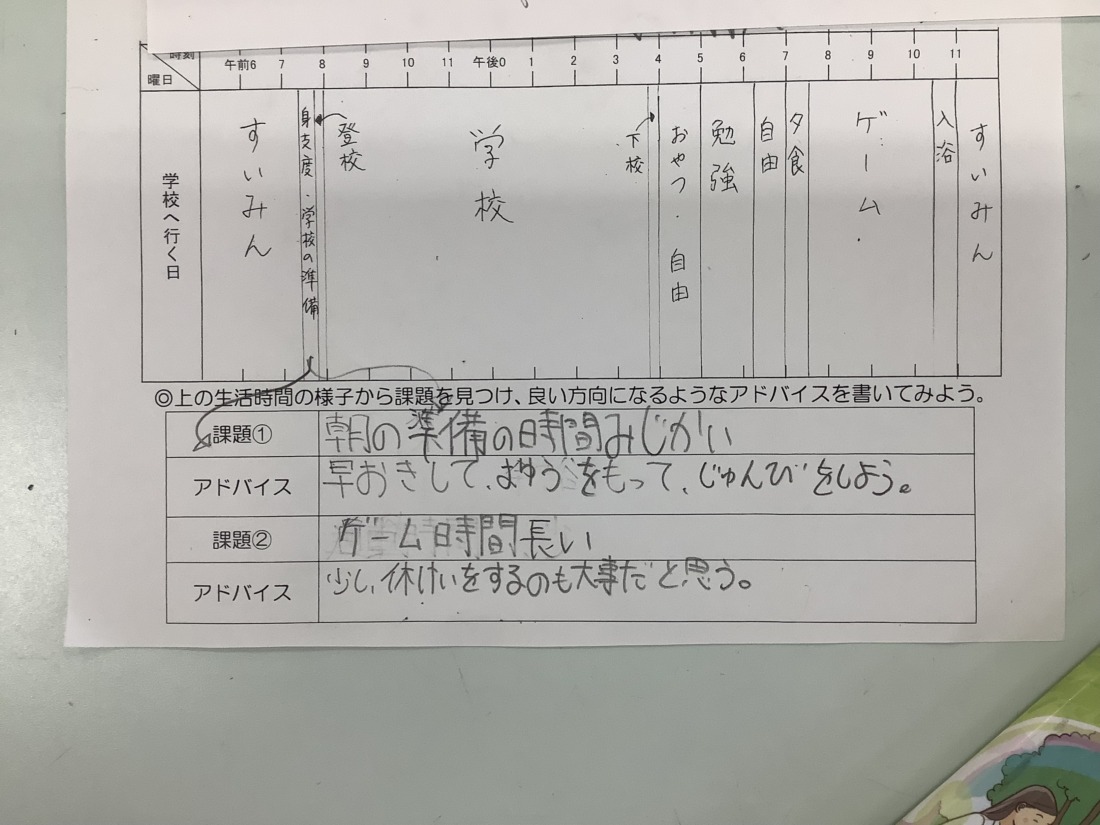 時刻
曜日
午前6 7 8 9 10 11 午後0 1 2 3 4 5 6 7 8 9 10 11
学校へ行く日
すいみん
身支度・学校の準備
登校
学校
下校
おやつ・自由
勉強
自由
夕食
ゲーム
入浴
すいみん
◎上の生活時間の様子から課題を見つけ、良い方向になるようなアドバイスを書いてみよう。
課題① 朝の準備の時間みじかい
アドバイス 早おきして、よゆうをもって、じゅんびをしよう。
課題② ゲーム時間長い
アドバイス 少し、休けいをするのも大事だと思う。